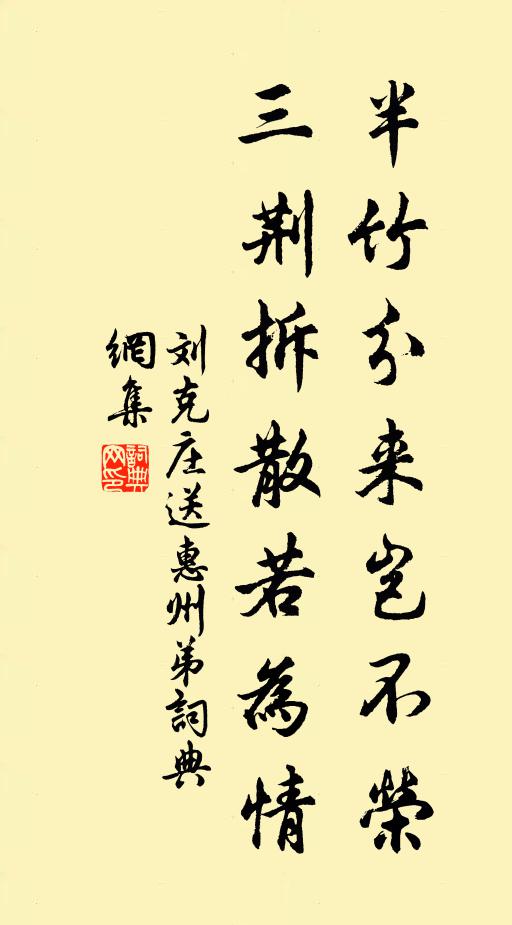 半竹分来岂不榮
三荆拆散若為情
刘克庄送惠州弟詞典
網集
詞典
网印